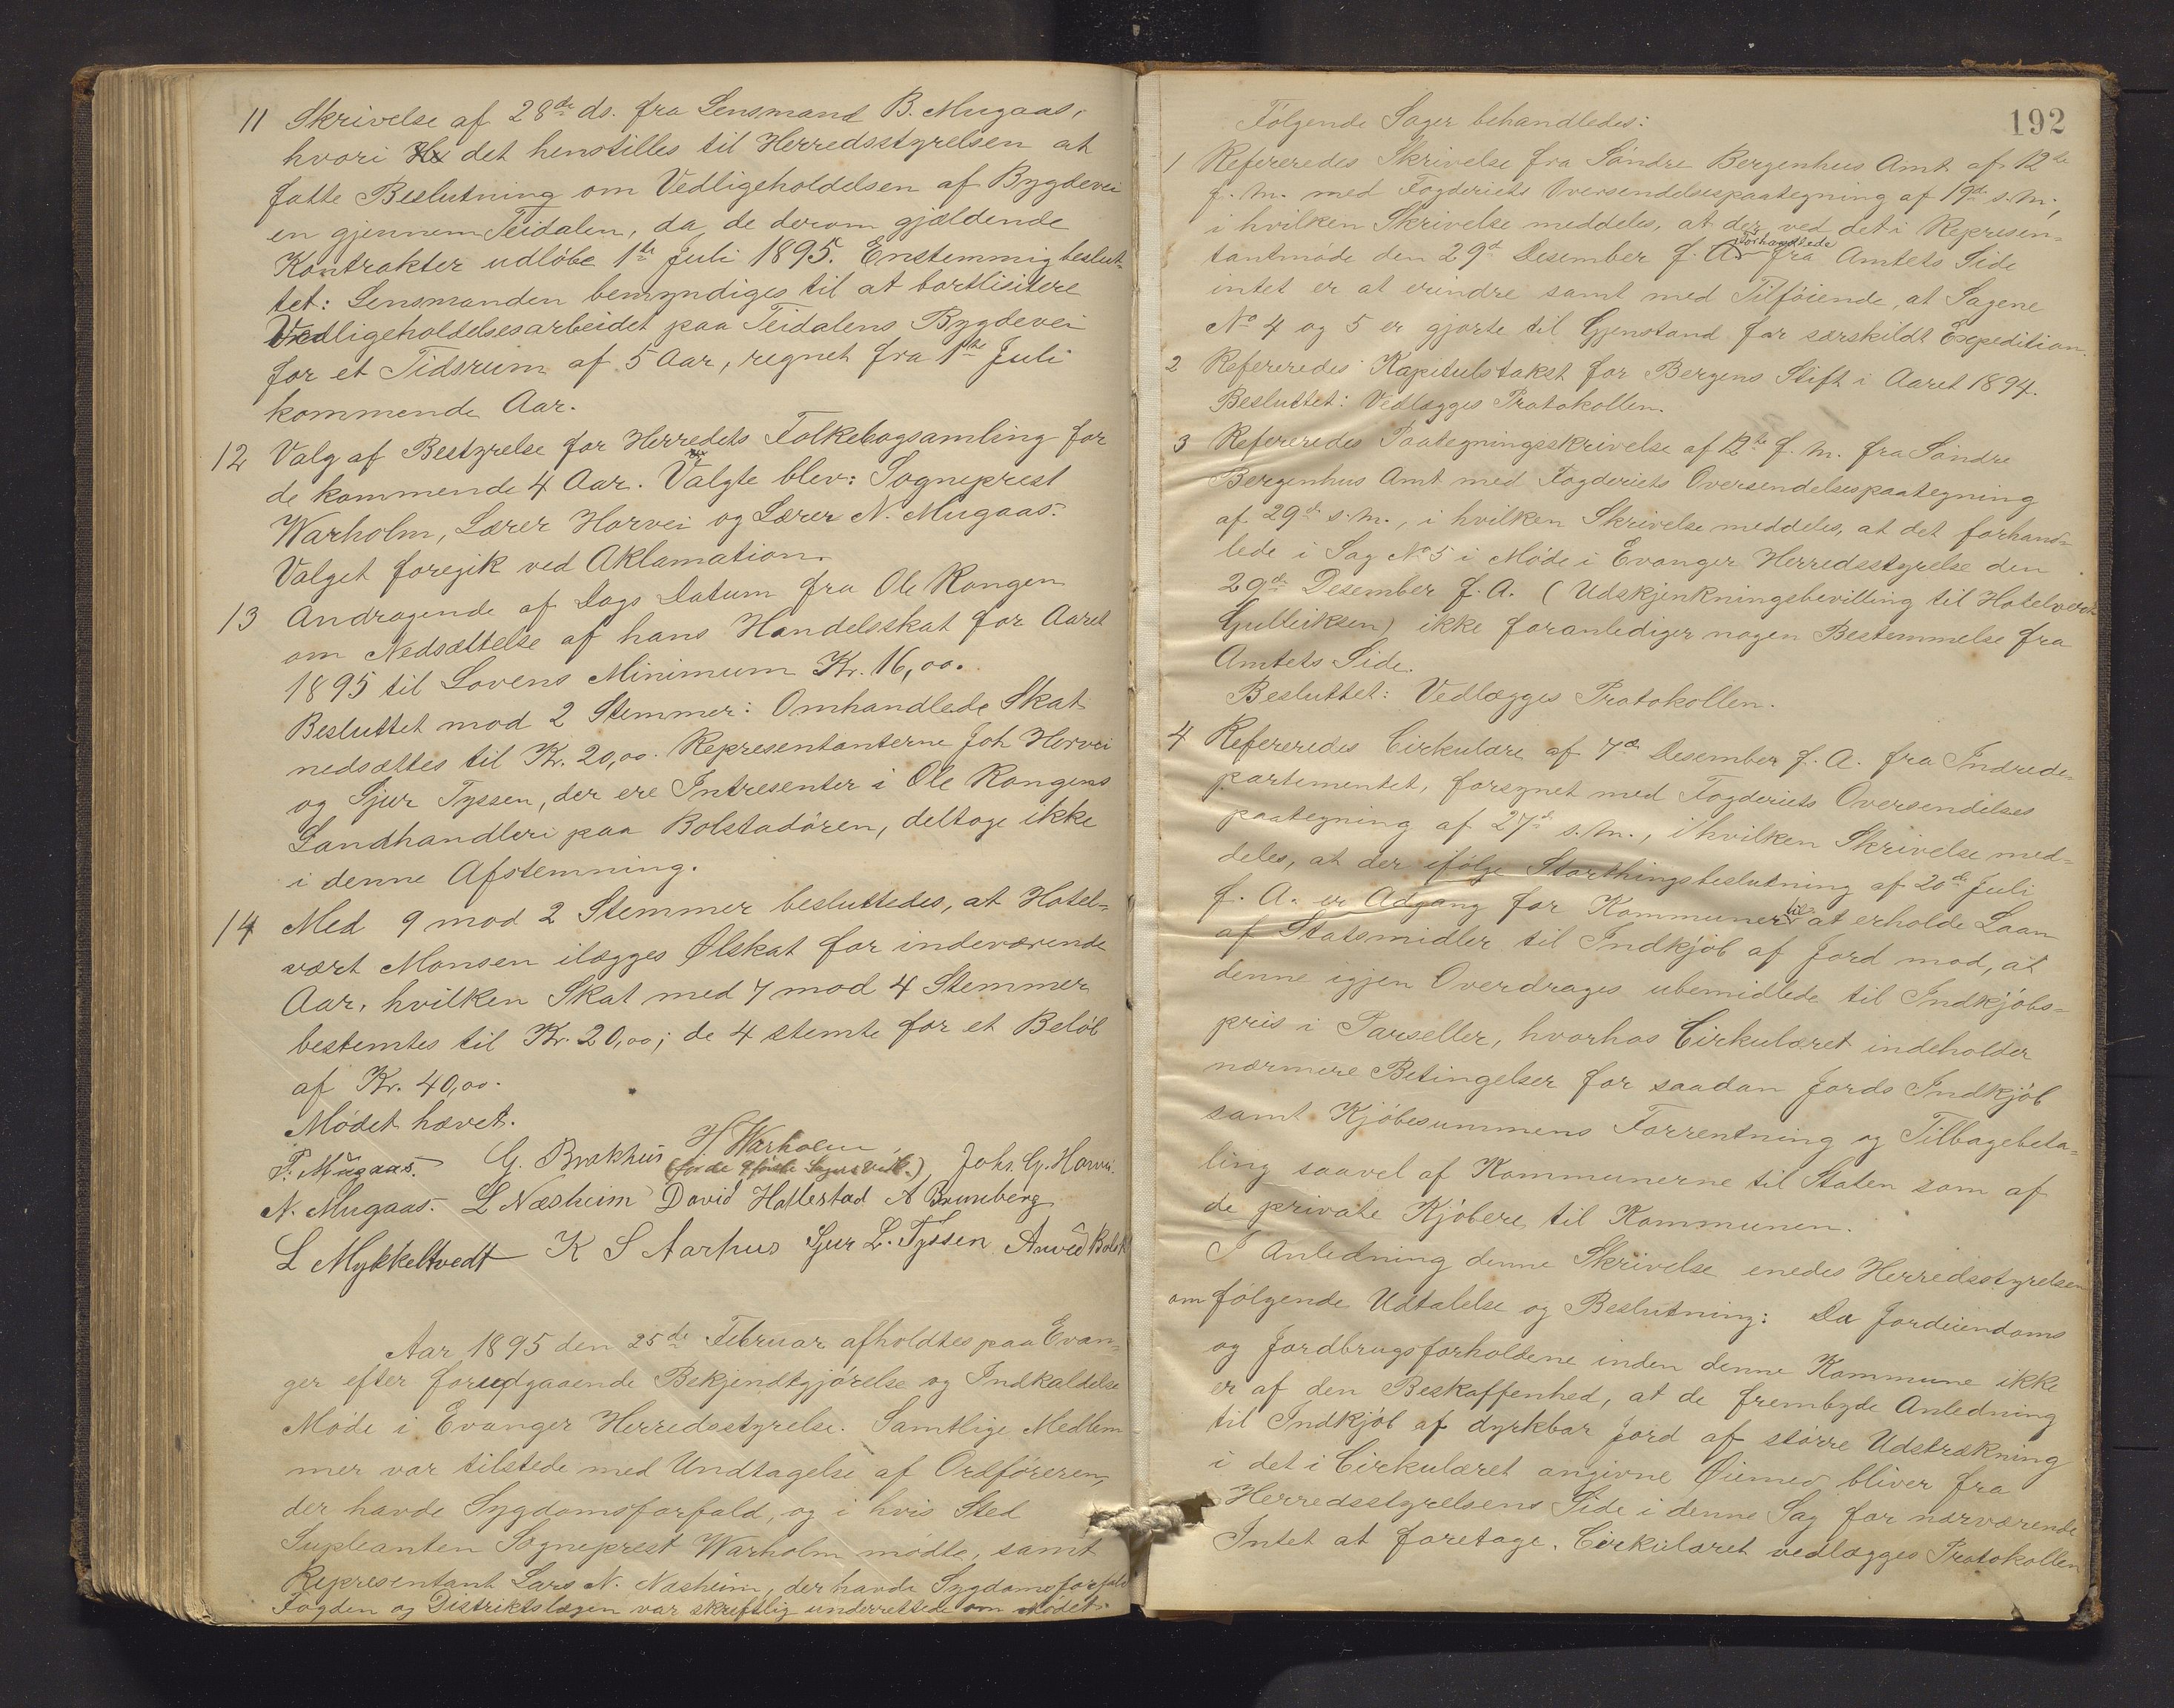 11 Skrivelse af 28de ds. fra Lensmand B. Mugaas,
hvori det henstilles til Herredsstyrelsen at
fatte Beslutning om Vedligeholdelsen af Bygdevei
en gjennem Teidalen, da de derom gjældende
Kontrakter udløbe 1ste Juli 1895. Enstemmig beslut-
tet: Lensmanden bemyndiges til at bortlisitere
Vedligeholdelsesarbeidet paa Teidalens Bygdevei
for et Tidsrum af 5 Aar, regnet fra 1ste Juli
kommende Aar.
12 Valg af Bestyrelse for Herredets Folkebogsamling for
de kommende 4 Aar. Valgte blev: Sogneprest
Warholm, Lærer Horvei og Lærer N. Mugaas.
Valget foregik ved Aklamation.
13 Andragende af Dags Datum fra Ole Rongen
om Nedsættelse af hans Handelsskat for Aaret
1895 til Lovens Minimum Kr. 16,00.
Besluttet mod 2 Stemmer: Omhandlede Skat
nedsættes til Kr. 20,00. Representanterne Joh Horvei
og Sjur Tyssen, der ere Intresenter i Ole Rongens
Landhandleri paa Bolstadøren, deltoge ikke
i denne Afstemning.
14 Med 9 mod 2 Stemmer besluttedes, at Hotel-
vært Monsen ilægges Ølskat for indeværende
Aar, hvilken Skat med 7 mod 4 Stemmer
bestemtes til Kr. 20,00; de 4 stemte for et Beløb
af Kr. 40,00.
Mødet hævet.
P. Mugaas. G. Brakhus H. Warholm (for de 9 første Sagers Vedk.), Johs. G. Horvei.
N. Mugaas. L Næsheim David Hallestad A Brunberg
L Mykkeltvedt K S Aarhus Sjur L. Tyssen Anved Bolst
Aar 1895 den 25de Februar afholdtes paa Evan-
ger efter forudgaaende Bekjendtgjørelse og Indkaldelse
Møde i Evanger Herredsstyrelse. Samtlige Medlem
mer var tilstede med Undtagelse af Ordføreren,
der havde Sygdomsforfald, og i hvis Sted
Supleanten Sogneprest Warholm mødte, samt
Representant Lars N. Næsheim, der havde Sygdomsforfald
Fogden og Distriktslægen var skriftlig underrettede om Mødet.
192
Følgende Sager behandledes:
1 Refereredes Skrivelse fra Søndre Bergenhus Amt af 12te
f. M. med Fogderiets Oversendelsespaategning af 19de s. M.,
i hvilken Skrivelse meddeles, at der ved det i Represen-
tantmøde den 29de Desember f. A. forhandlede fra Amtets Side
intet er at erindre samt med Tilføiende, at Sagene
No 4 og 5 er gjorte til Gjenstand for særskildt Expedition.
2 Refereredes Kapitulstakst for Bergens Stift i Aaret 1894.
Besluttet: Vedlægges Protokollen.
3 Refereredes Paategningsskrivelse af 12te f. M. fra Søndre
Bergenhus Amt med Fogderiets Oversendelsespaategning
af 29de s. M., i hvilken Skrivelse meddeles, at det forhand-
lede i Sag No 5 i Møde i Evanger Herredsstyrelse den
29de Desember f. A. (Udskjenkningsbevilling til Hotelvert
Gulleiksen) ikke foranlediger nogen Bestemmelse fra
Amtets Side.
Besluttet: Vedlægges Protokollen.
4 Refereredes Cirkulære af 7de Desember f. A. fra Indrede-
partementet, forsynet med Fogderiets Oversendelses
paategning af 27de s. M., i hvilken Skrivelse med-
deles, at der ifølge Storthingsbeslutning af 20de Juli
f. A. er Adgang for Kommuner til at erholde Laan
af Statsmidler til Indkjøb af Jord mod, at
denne igjen Overdrages ubemidlede til Indkjøbs-
pris i Parseller, hvorhos Cirkulæret indeholder
nærmere Betingelser for saadan Jords Indkjøb
samt Kjøbesummens Forrentning og Tilbagebeta-
ling saavel af Kommunerne til Staten som af
de private Kjøbere til Kommunen.
I Anledning denne Skrivelse enedes Herredsstyrelsen
om følgende Udtalelse og Beslutning: Da Jordeiendoms
og Jordbrugsforholdene inden denne Kommune ikke
er af den Beskaffenhed, at de frembyde Anledning
til Indkjøb af dyrkbar Jord af større Udstrækning
i det i Cirkulæret angivne Øiemed bliver fra
Herredsstyrelsens Side i denne Sag for nærværende
Intet at foretage. Cirkulæret vedlægges Protokollen